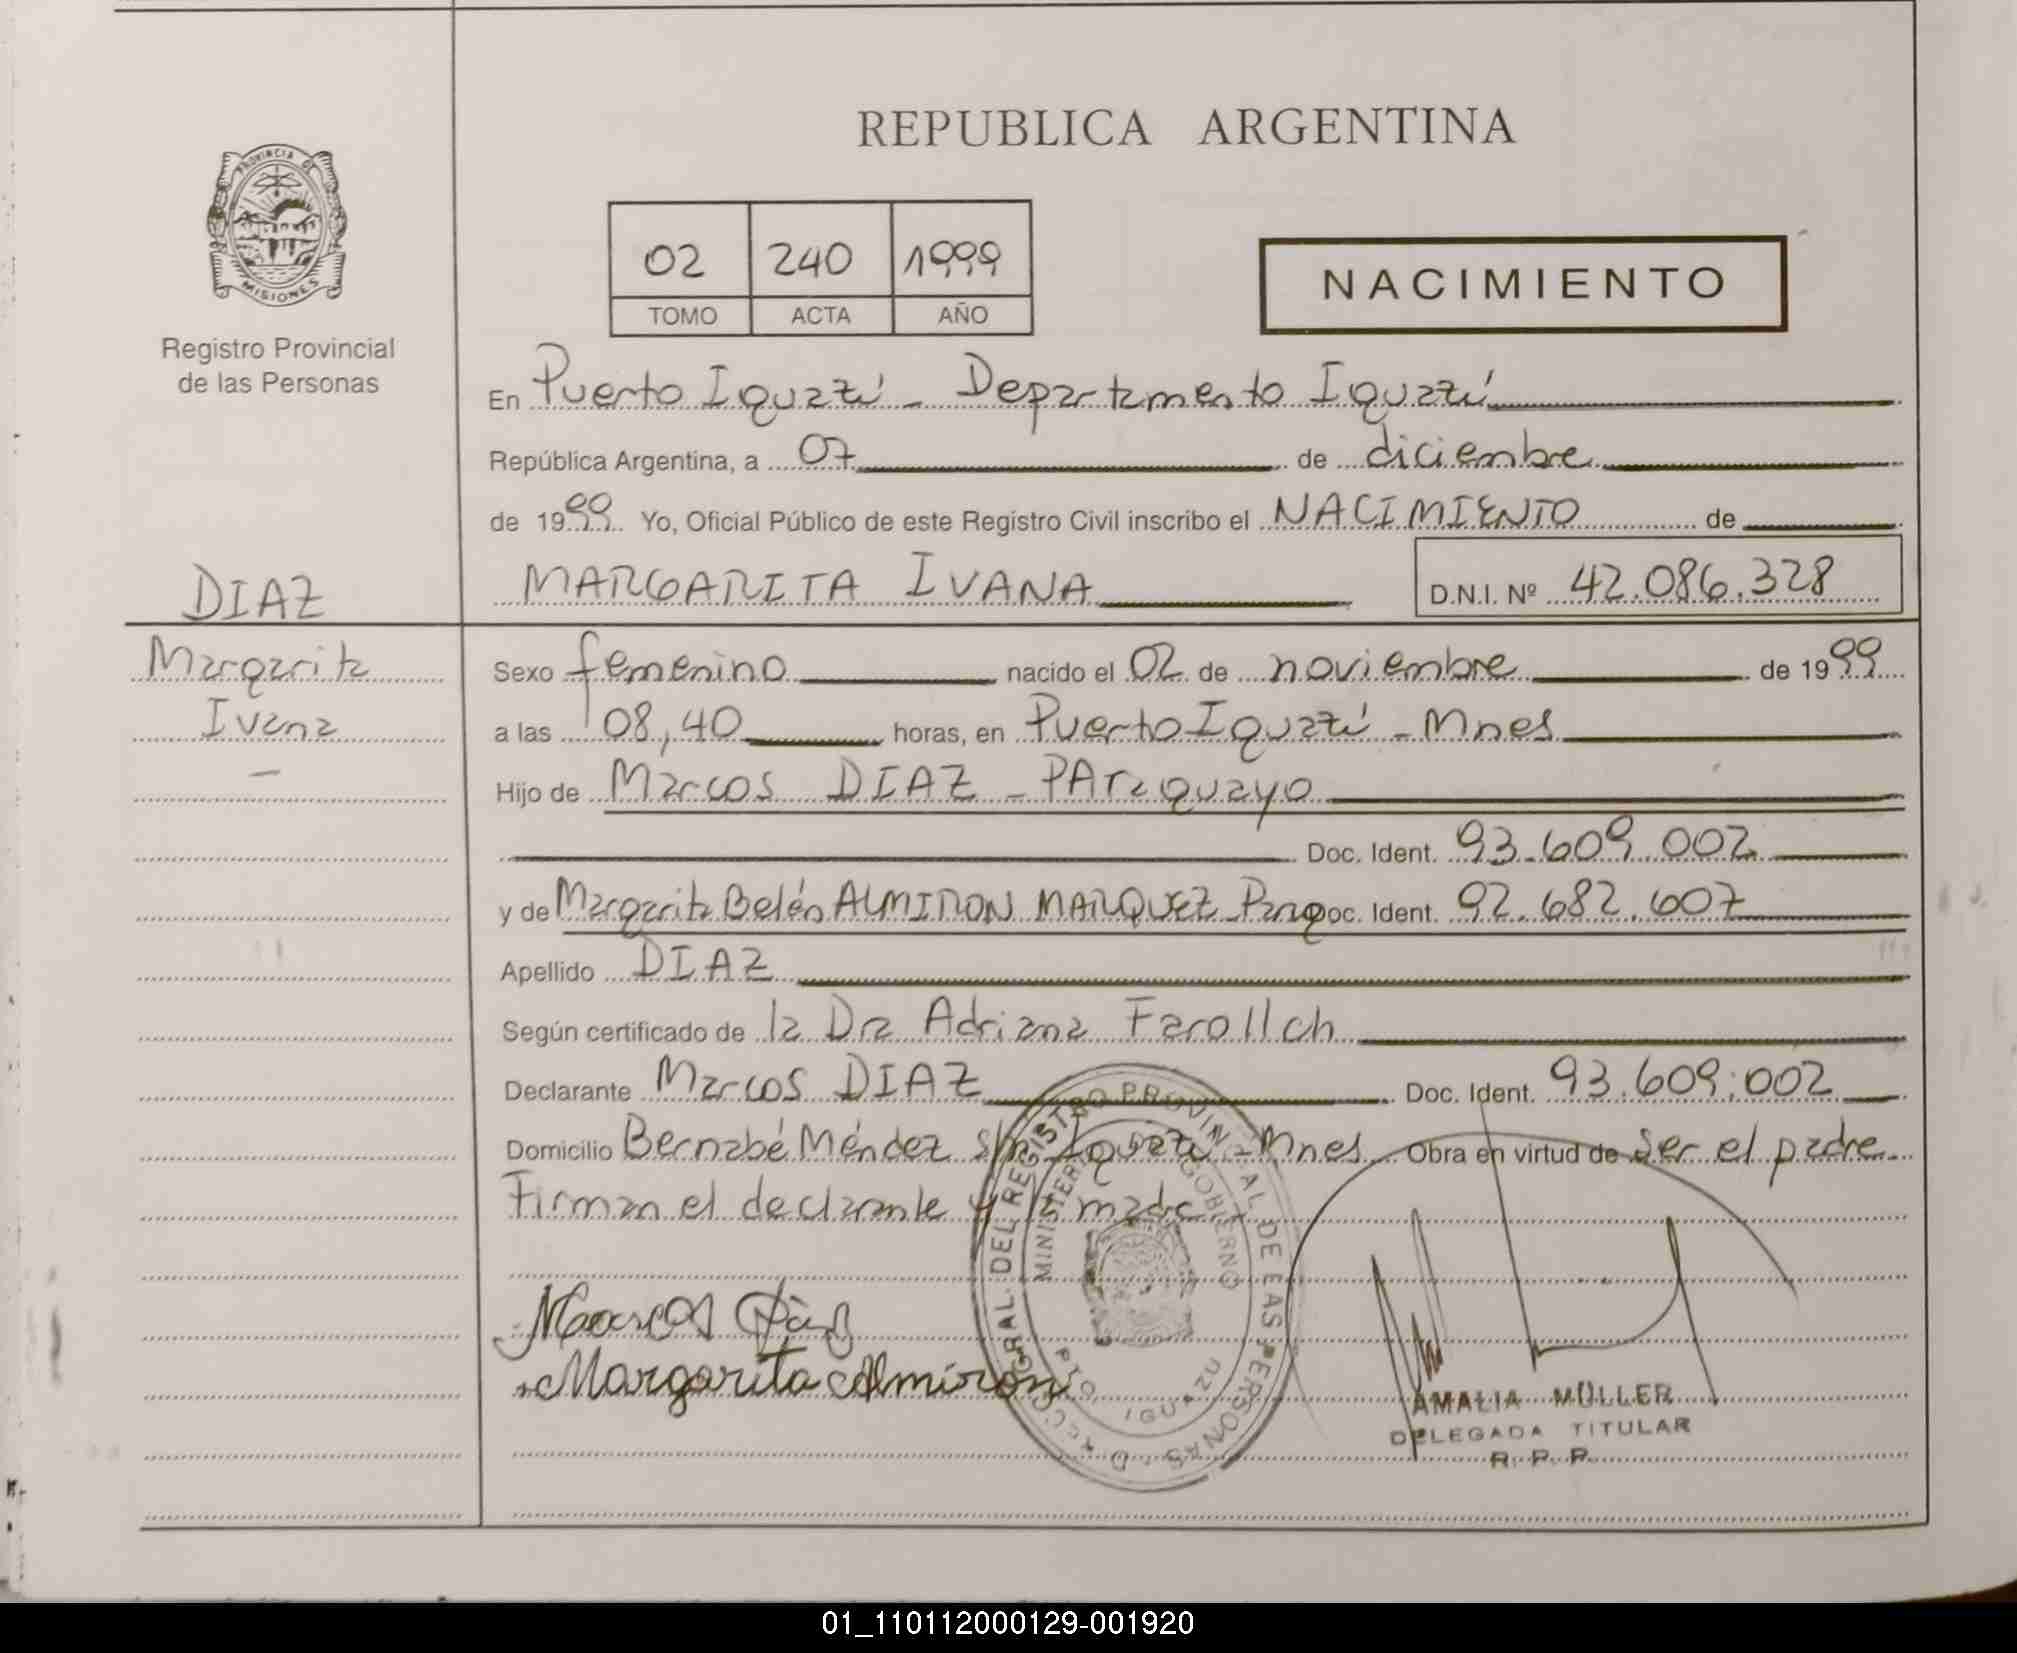 REPUBLICA ARGENTINA
PROVINCIA DE
MISIONES
Registro Provincial
de las Personas
02 240 1999
TOMO ACTA AÑO
NACIMIENTO
En Puerto Iguazú - Departamento Iguazú
República Argentina, a 07 de diciembre
de 1999 Yo, Oficial Público de este Registro Civil inscribo el NACIMIENTO de
MARGARITA IVANA D.N.I. Nº 42.086.328
DIAZ
Margarita
Ivana
-
Sexo femenino nacido el 02 de noviembre de 1999
a las 08,40 horas, en Puerto Iguazú - Mnes
Hijo de Marcos DIAZ - PAraguayo
Doc. Ident. 93.609.002
y de Margarita Belén ALMIRON MARQUEZ Parag Doc. Ident. 92.682.607
Apellido DIAZ
Según certificado de la Dra Adriana Farollch
Declarante Marcos DIAZ Doc. Ident. 93.609.002
Domicilio Bernabé Méndez s/n Iguazú - Mnes Obra en virtud de ser el padre
Firman el declarante y la madre
Marcos Díaz
Margarita Almirón
GRAL. DEL REGISTRO PROVINCIAL DE LAS PERSONAS
MINISTERIO DE GOBIERNO
PTO. IGUAZU
AMALIA MÜLLER
DELEGADA TITULAR
R. P. P.
01_110112000129-001920